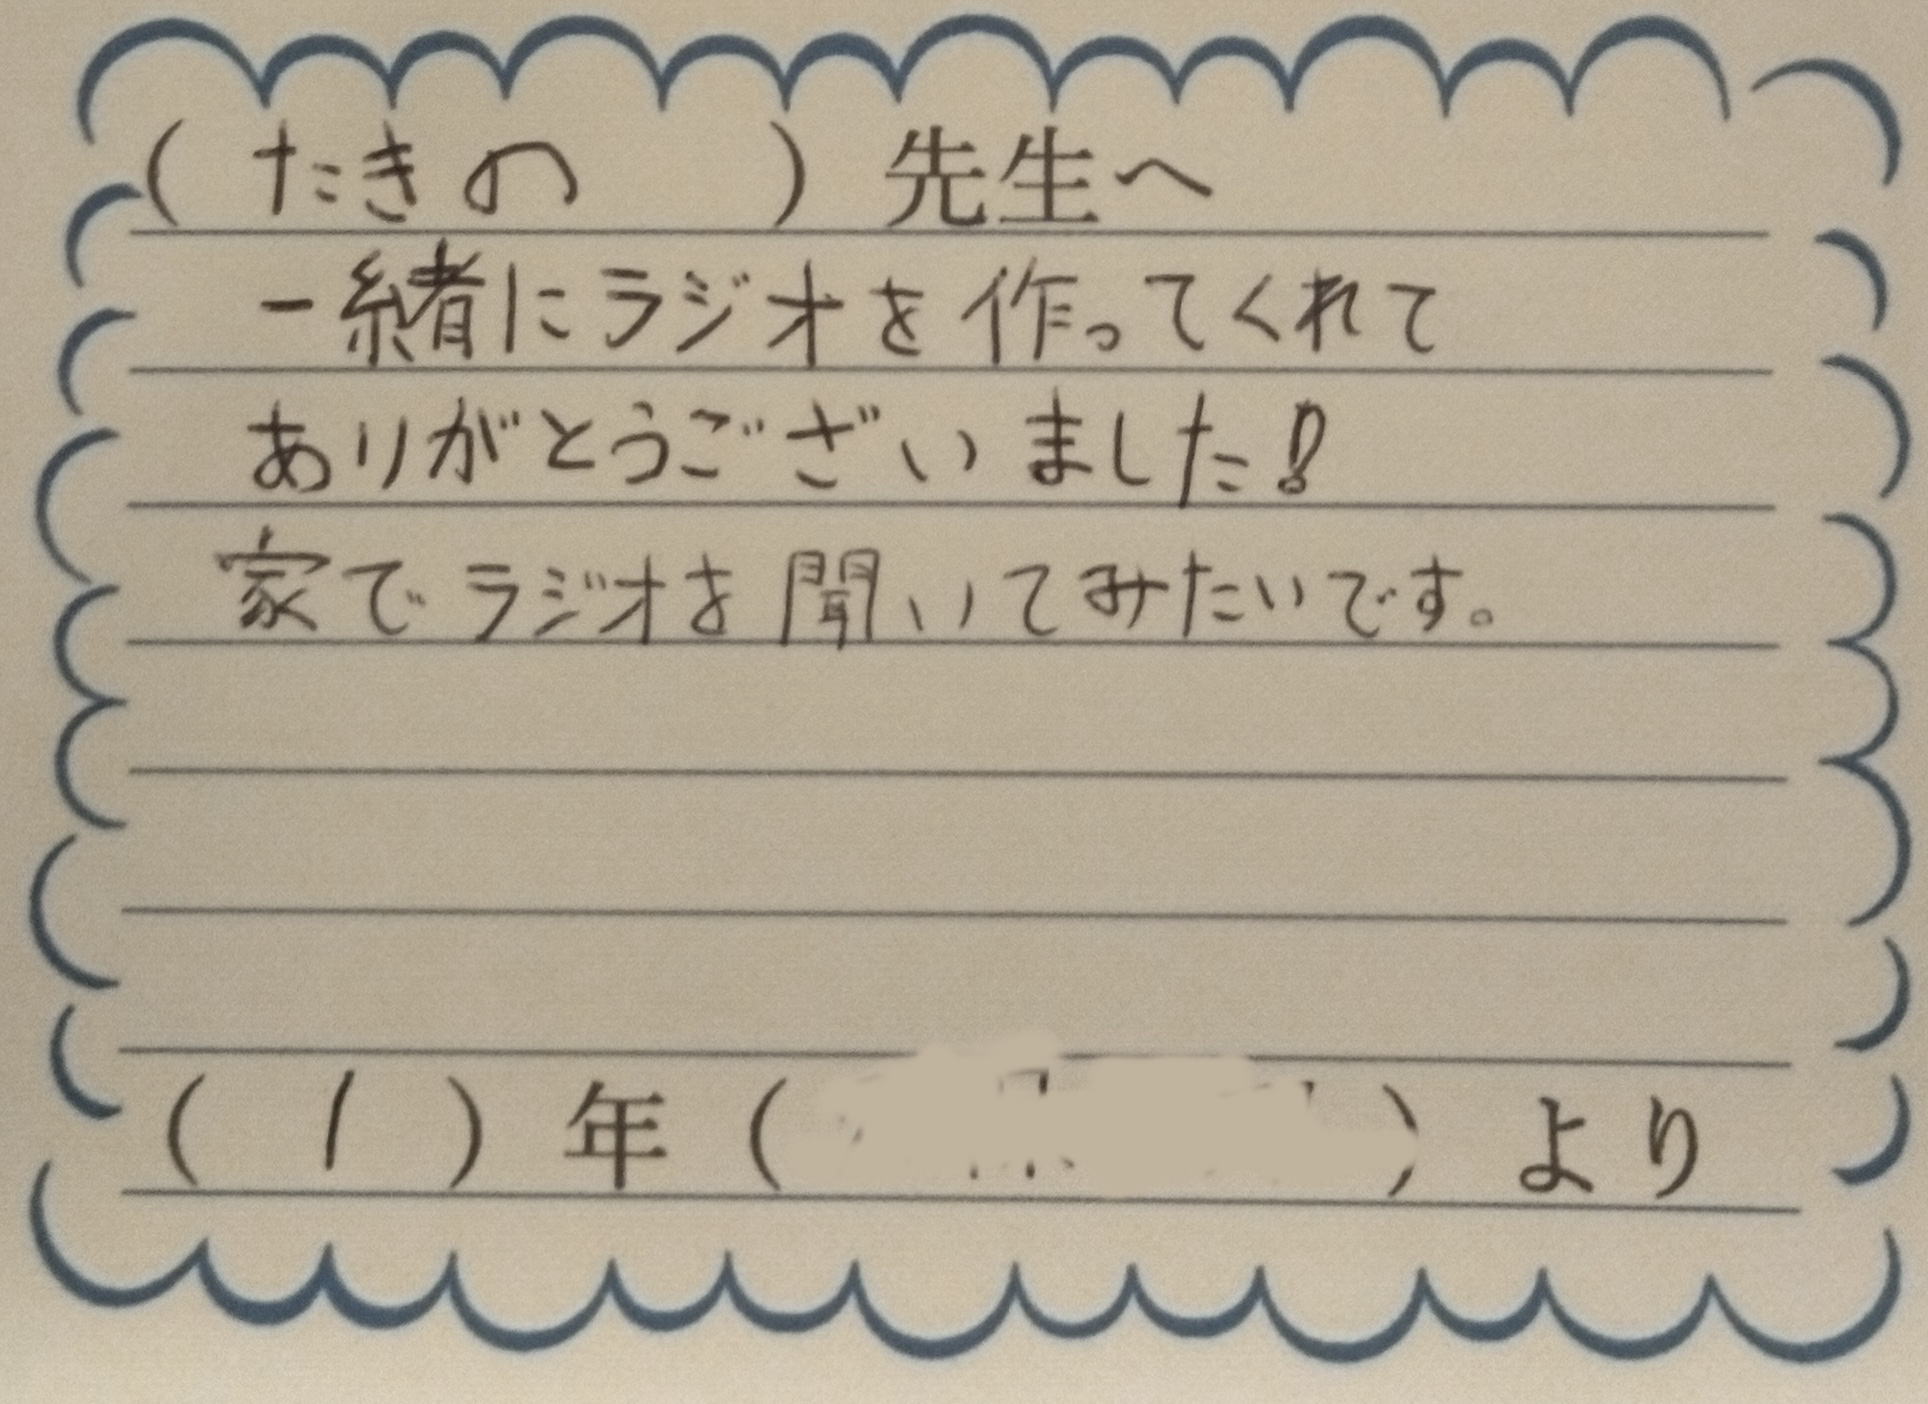 （ たきの ）先生へ
一緒にラジオを作ってくれて
ありがとうございました！
家でラジオを聞いてみたいです。
（ 1 ）年（ ）より